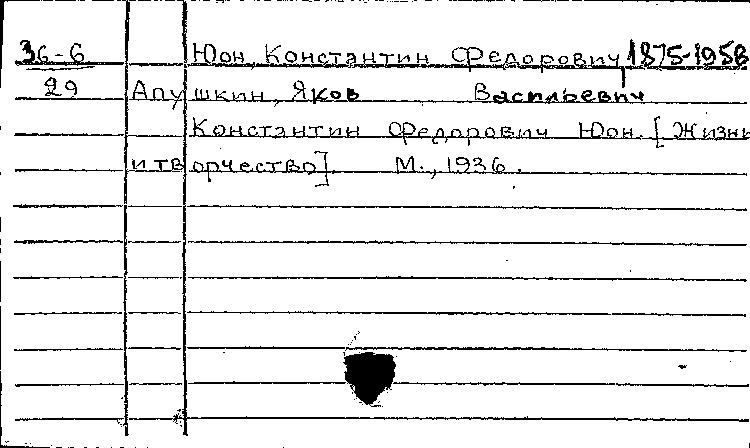 36-6 Юон, Константин Федорович, 1875-1958
29 Апушкин, Яков Васильевич
Константин Федорович Юон. [Жизнь
и творчество]. М., 1936.